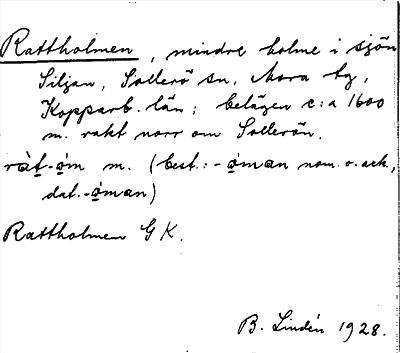 Rattholmen, mindre holme i sjön
Siljan, Sollerö sn, Mora tg,
Kopparb. län; belägen c:a 1600
m. rakt norr om Sollerön.
ràt-ø̀m m. (best.: -ø̀man nom. o. ack.,
dat. -ø̀man)
Rattholmen GK.
B. Lindén 1928.